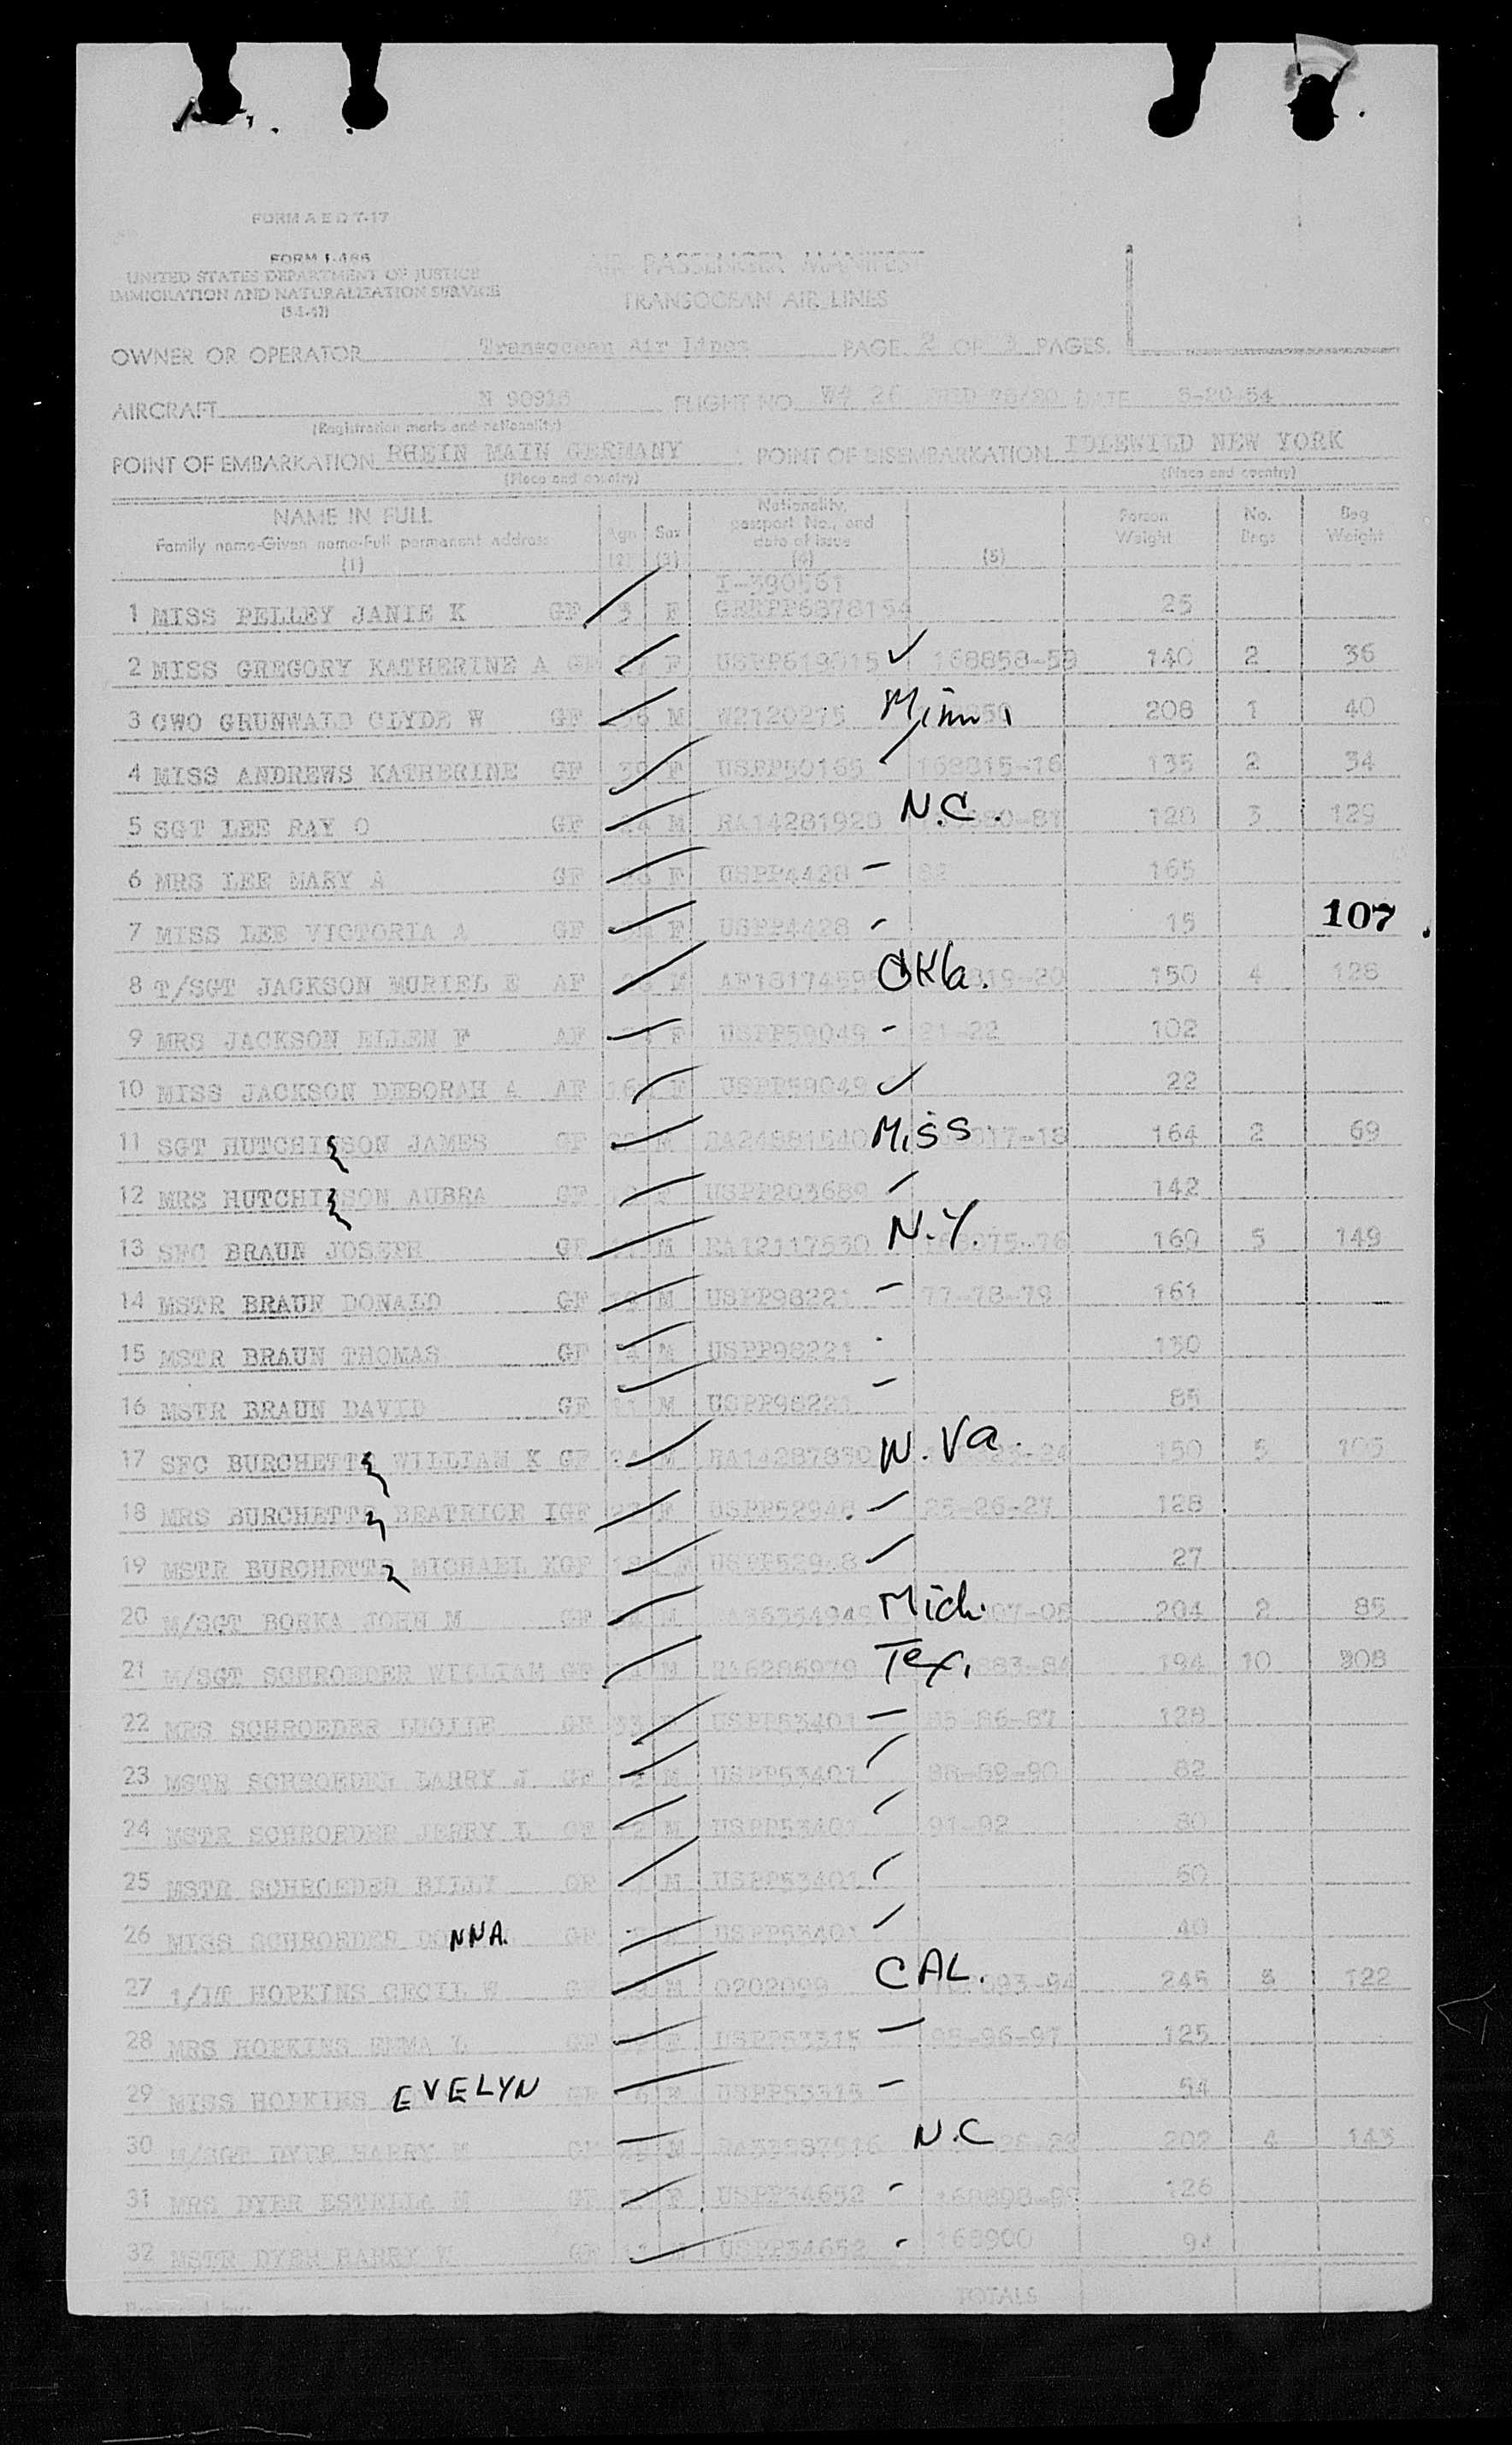 FORM A E D T-17
FORM I-466
UNITED STATES DEPARTMENT OF JUSTICE
IMMIGRATION AND NATURALIZATION SERVICE
AIR PASSENGER MANIFEST
TRANSOCEAN AIR LINES
OWNER OR OPERATOR Transocean Air Lines PAGE 2 OF PAGES.
AIRCRAFT FLIGHT NO. DATE 5-20-54
(Registration marks and nationality)
POINT OF EMBARKATION RHEIN MAIN GERMANY POINT OF DISEMBARKATION IDLEWILD NEW YORK
(Place and country) (Place and country)
NAME IN FULL Age Sex Nationality, passport No., and date of issue Person Weight No. Bags Bag Weight
Family name-Given name-Full permanent address
(1) (2) (3) (4) (5)
I-390561
1 MISS PELLEY JANIE K GF 3 F 25
2 MISS GREGORY KATHERINE A F USPP619015 168858-59 140 2 36
3 CWO GRUNWALD CLYDE W GF M W2120215 Minn. 208 1 40
4 MISS ANDREWS KATHERINE GF F USPP50165 168815-16 135 2 34
5 SGT LEE RAY O GF M RA14281928 N.C. 128 3 129
6 MRS LEE MARY A GF F USPP4428 - 82 165
7 MISS LEE VICTORIA A GF F USPP4428 - 15 107
8 T/SGT JACKSON MURIEL E AF M Okla. 150 4 128
9 MRS JACKSON ELLEN F AF F USPP59049 - 21-22 102
10 MISS JACKSON DEBORAH A AF F USPP59049 22
11 SGT HUTCHINSON JAMES GF Miss 164 2 69
12 MRS HUTCHINSON AUBRA GF USPP203689 142
13 SFC BRAUN JOSEPH GF M RA12117630 N.Y. 160 5 149
14 MSTR BRAUN DONALD GF M USPP98221 - 77-78-79 161
15 MSTR BRAUN THOMAS GF 14 M USPP98221 130
16 MSTR BRAUN DAVID GF 11 M USPP98221 - 85
17 SFC BURCHETTE WILLIAM K GF M RA14287830 W. Va. 150 5 105
18 MRS BURCHETTE BEATRICE I GF F USPP52948 25-26-27 128
19 MSTR BURCHETTE MICHAEL K GF M USPP52948 27
20 M/SGT BORKA JOHN M GF M Mich. 204 2 85
21 M/SGT SCHROEDER WILLIAM GF M RA6286979 Tex. 194 10 308
22 MRS SCHROEDER LUCILE GF USPP53401 - 85-86-87 128
23 MSTR SCHROEDER LARRY J GF M USPP53401 88-89-90 82
24 MSTR SCHROEDER JERRY L GF M USPP53401 91-92 80
25 MSTR SCHROEDER BILLY GF M USPP53401 60
26 MISS SCHROEDER DONNA GF USPP53401 40
27 1/LT HOPKINS CECIL W GF M 0202099 CAL. 245 122
28 MRS HOPKINS EMMA L GF F USPP53315 - 95-96-97 125
29 MISS HOPKINS EVELYN GF F USPP53315 - 54
30 M/SGT DYER HARRY M GF M N.C 202 4 143
31 MRS DYER ESTELLA M GF F USPP34652 - 168898-99 126
32 MSTR DYER HARRY GF USPP34652 - 168900 94
Prepared by: TOTALS